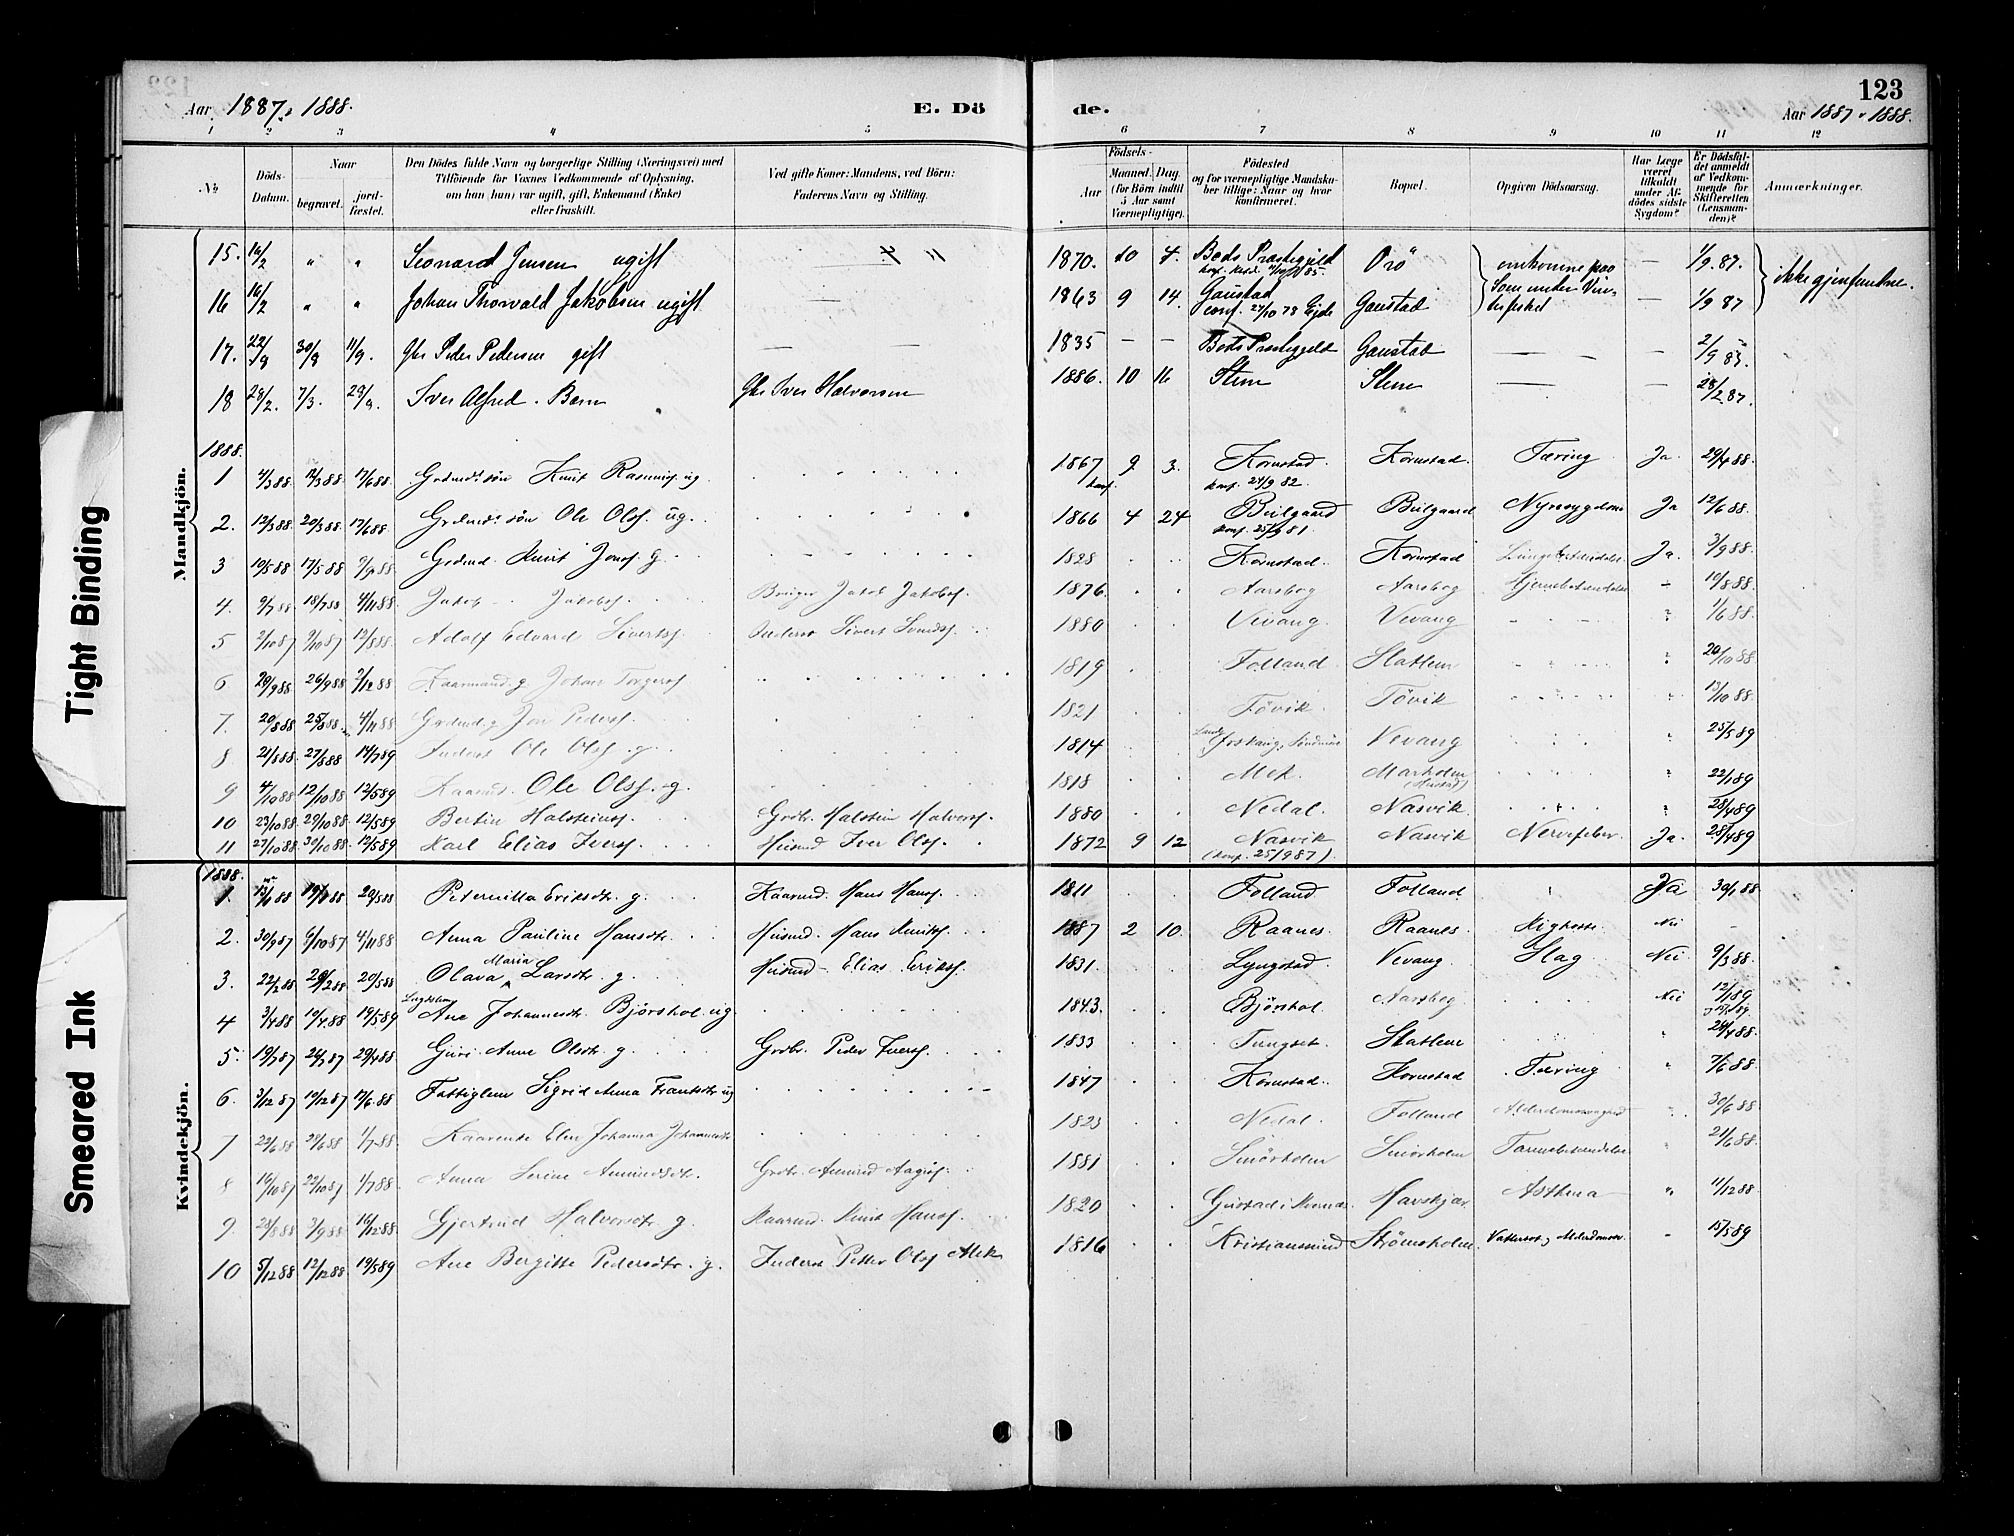 123
Aar 1887 & 1888.
E. Dö
de.
Aar 1887 & 1888.
1 2 3 4 5 6 7 8 9 10 11 12
No
Döds-
Datum.
Naar
begravet.
jord-
fæstet.
Den Dödes fulde Navn og borgerlige Stilling (Næringsvei) med
Tilföiende for Voxnes Vedkommende af Oplysning,
om han (hun) var ugift, gift, Enkemand (Enke)
eller fraskilt.
Ved gifte Koner: Mandens, ved Börn:
Faderens Navn og Stilling.
Födsels-
Aar
Maaned.
Dag.
(for Börn indtil
5 Aar samt
Værnepligtige).
Födested
og for værnepligtige Mandska-
ber tillige: Naar og hvor
konfirmeret.
Bopæl.
Opgiven Dödsaarsag.
Har Læge
været
tilkaldt
under Af-
dödes sidste
Sygdom?
Er Dödsfal-
det anmeldt
af Vedkom-
mende for
Skifteretten
(Lensman-
den)?
Anmærkninger.
Mandkjön.
15. 16/2 " " Leonard Jensen ugift 1870. 10 4. Bods Præstegjeld Orö omkomne paa — 1/9 87. ikke gjenfundne.
16 16/2 " " Johan Thorvald Jakobsen ugift — 1863 9 14. Gaustad Gaustad — 1/9 87
conf. 27/10 78 Ejde
17. 22/8 30/8 11/9. Gbr Peder Pedersen gift — — 1835 — — Bods Præstegjeld Gaustad — — 2/9 83.
18 28/2. 7/3. 29/9. Iver Alfred. Barn Gbr Iver Halvorsen 1886. 10 16 Stene Stene — — 28/2 87.
1888.
1 4/3 88. 12/3 88 17/6 88 Grdmds sön Knut Rasmusf. ug 1867 9 3. Kornstad. Kornstad. Tæring Ja. 29/4 88.
konf. konf. 24/9 82.
2. 12/3 88. 20/3 88 17/6 88. Grdmds sön Ole Olsf. ug. 1866 4 24 Bulgaard Bulgaard Nyresygdom Ja 12/6 88.
konf. 25/9 81.
3 10/5 88 17/5 88 9/9 88 Grdmd. Knut Jonsf. g. 1828 Kornstad. Kornstad Lungebetændelse Ja. 3/9 88.
4. 9/7 88 18/7 88 4/11 88. Jakob Jakobsf. Bruger Jakob Jakobsf. 1876. Aarsbog Aarsbog Hjernebetændelse - 10/8 88.
5 2/10 87 9/10 87 12/8 88. Adolf Edvard Sivertsf. Inderst Sivert 1880 Vevang. Vevang 1/6 88.
6 20/9 88. 26/9 88 2/12 88 Kaarmand. g. Johan Torgersf. 1819 Folland. Statlem 20/10 88.
7. 20/8 88 25/8 88. 4/11 88 Grdmd. g. Jon Pedersf. 1821 Tövik. Tövik 13/10 88.
8 21/8 88. 27/8 88 14/7 89 Inderst Ole Olsf. g. 1814 Vevang 25/5 89
9 4/10 88 12/10 88. 12/5 89 Kaarmd. Ole Olsf. g. 1818 Mek. Marholm 22/1 89
10 23/10 88. 29/10 88. 12/5 89 Bertin Halsteinsf. Grdbr. Halstein Halvorsf. 1880 Nedal. Nasvik. 28/4 89
11 27/10 88. 30/10 88. 12/5 89 Karl Elias Iversf. Husmd Iver Olsf. 1872 9 12 Nasvik Nasvik Nervefeber. Ja. 28/4 89
(konf. 25/9 87).
Kvindekjön.
1888.
1. 13/1 88 19/1 88 20/5 88 Peternilla Eriksdtr. g. Kaarmd. Hans Hansf. 1811 Folland Folland. Ja 30/1 88
2. 30/9 87 6/10 87 4/11 88 Anna Pauline Hansdtr. Husmd. Hans Knutsf. 1887 2 10. Raanes. Raanes. Kighoste. Nei -
Maria
3. 22/2 88 29/2 88 20/5 88 Olava Larsdtr. g. Husmd. Elias Eriksf. 1831. Lyngstad. Vevang. Slag Nei 9/3 88.
Lægdslem
4 3/4 88 10/4 88 19/5 89 Ane Johannesdtr. Björshol ug. 1843. Björshol. Aarsbog. Nei 12/1 89
5. 19/7 87 26/7 87 29/4 88. Guri Anne Olsdtr. g. Grdbr. Peder Iversf. 1833 Tungset. Statlem 29/4 88.
6. 3/12 87 10/12 87 17/6 88 Fattiglem Sigrid Anna Frantsdtr ug 1847 Kornstad. Kornstad Tæring 7/6 88.
7 22/6 88 28/6 88 1/7 88. Kaarenke Elen Johanna Johannesdtr 1823 Nedal. Folland Alderdomssvaghed 30/6 88
8 16/10 87 22/10 87 1/7 88. Anna Serine Amundsdtr. Grdbr. Amund Aagesf. 1881 Smörholm Smörholm Tarmebetændelse 21/6 88.
9 28/8 88 3/9 88 16/12 88. Gjertrud Halvorsdtr. g. Kaarmd. Knut Hansf. 1820 Gustad i Kvernæs. Havskjær Asthma 11/12 88
10 5/12 88 12/12 88. 19/5 89 Ane Bergitte Pedersdtr. g. Inderst Petter Olsf Mek 1816 Kristianssund Strömsholm. Vattersot, Alderdomssv. - 15/5 89
Tight Binding
Smeared Ink